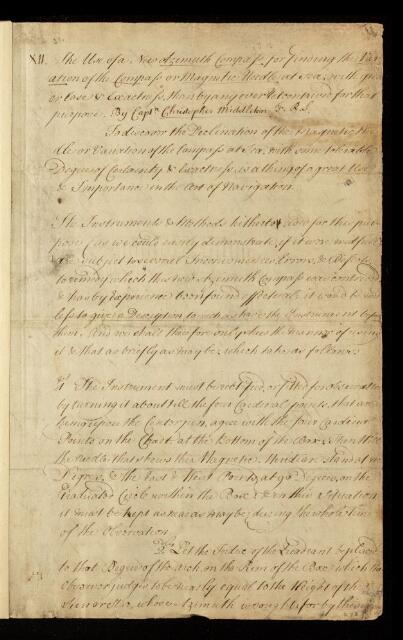 XII. The Use of a New Azimuth Compass, for finding the Vari-
ation of the Compass or Magnetic Needle, at Sea, with grea-
ter Ease & Exactness, than by any ever yet contriv'd for that
purpose. By Capt. Christopher Middleton F. R. S.
To discover the Declination of the Magnetic Nee-
dle, or Variation of the Compass at Sea, with some tolerable
Degree of Certainty & Exactness, is a thing of a great Use
& Importance in the Art of Navigation.
The Instruments & Methods hitherto used for this pur-
pose, (as we could easily demonstrate, if it were needful)
are subject to several Inconveniencies, Errors, &
to remedy which this new Azimuth Compass was contrived
& has by Experience been found effectual; it would be need-
less to give a Description to such as have the Instrument before
them. And we shall therefore only shew the manner of using
it & that as briefly as may be, which take as follows.
The Instrument must be rectified, or fit for observation
by turning it about till the four Cardinal points, that are
hung upon the Center pin, agree with the four Cardinal
Points on the Chart at the Bottom of the Box, then
the Needle that shews the Magnetic Meridian stand at no
Degree, & the East & West Points at 90 Degrees, on the
Graduated Circle within the Box; & in this Situation
it must be kept as near as may be, during the whole time
of the Observation.
2. Let the Index of the Quadrant be placed
to that Degree of the Arch on the Rim of the Box which the
Observer judges to be nearly equal to the Height of the
Sun or Star, whose Azimuth is sought for by the